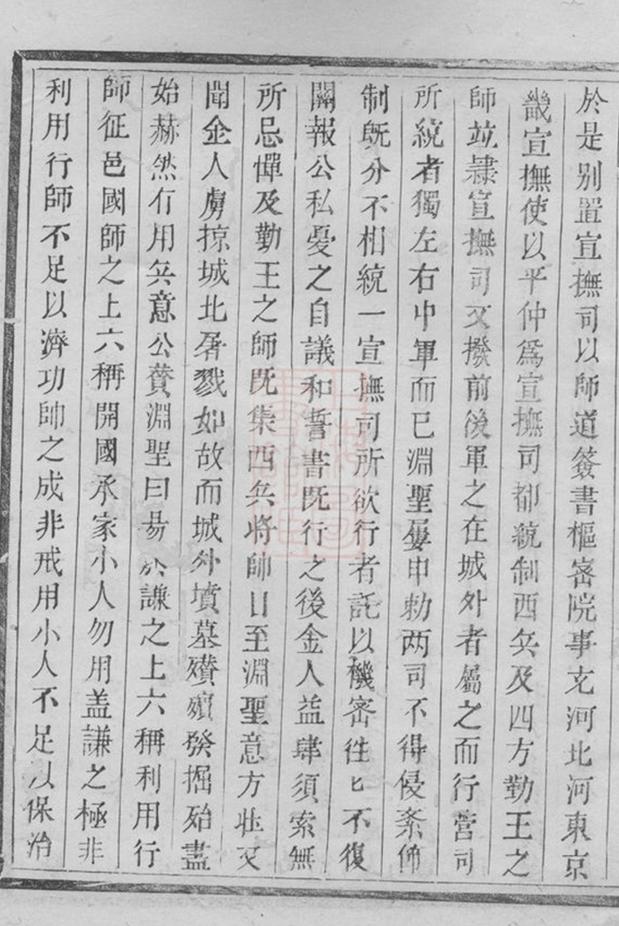 於是别置宣撫司以師道簽書樞密院事充河北河東京
畿宣撫使以平仲爲宣撫司都統制西兵及四方勤王之
師竝隸宣撫司又撥前後軍之在城外者屬之而行營司
所統者獨左右中軍而巳淵聖屢申勅两司不得侵紊節
制旣分不相統一宣撫司所欲行者託以機密徃匕不復
關報公私憂之自議和誓書既行之後金人益肆須索無
所忌憚及勤王之師既集西兵將帥日至淵聖意方壯又
聞金人虜掠城北屠戮如故而城外墳墓殯發掘殆盡
始赫然有用兵意公贊淵聖曰昜於謙之上六稱利用行
師征邑國師之上六稱開國承家小人勿用盖謙之極非
利用行師不足以濟功師之成非戒用小人不足以保治